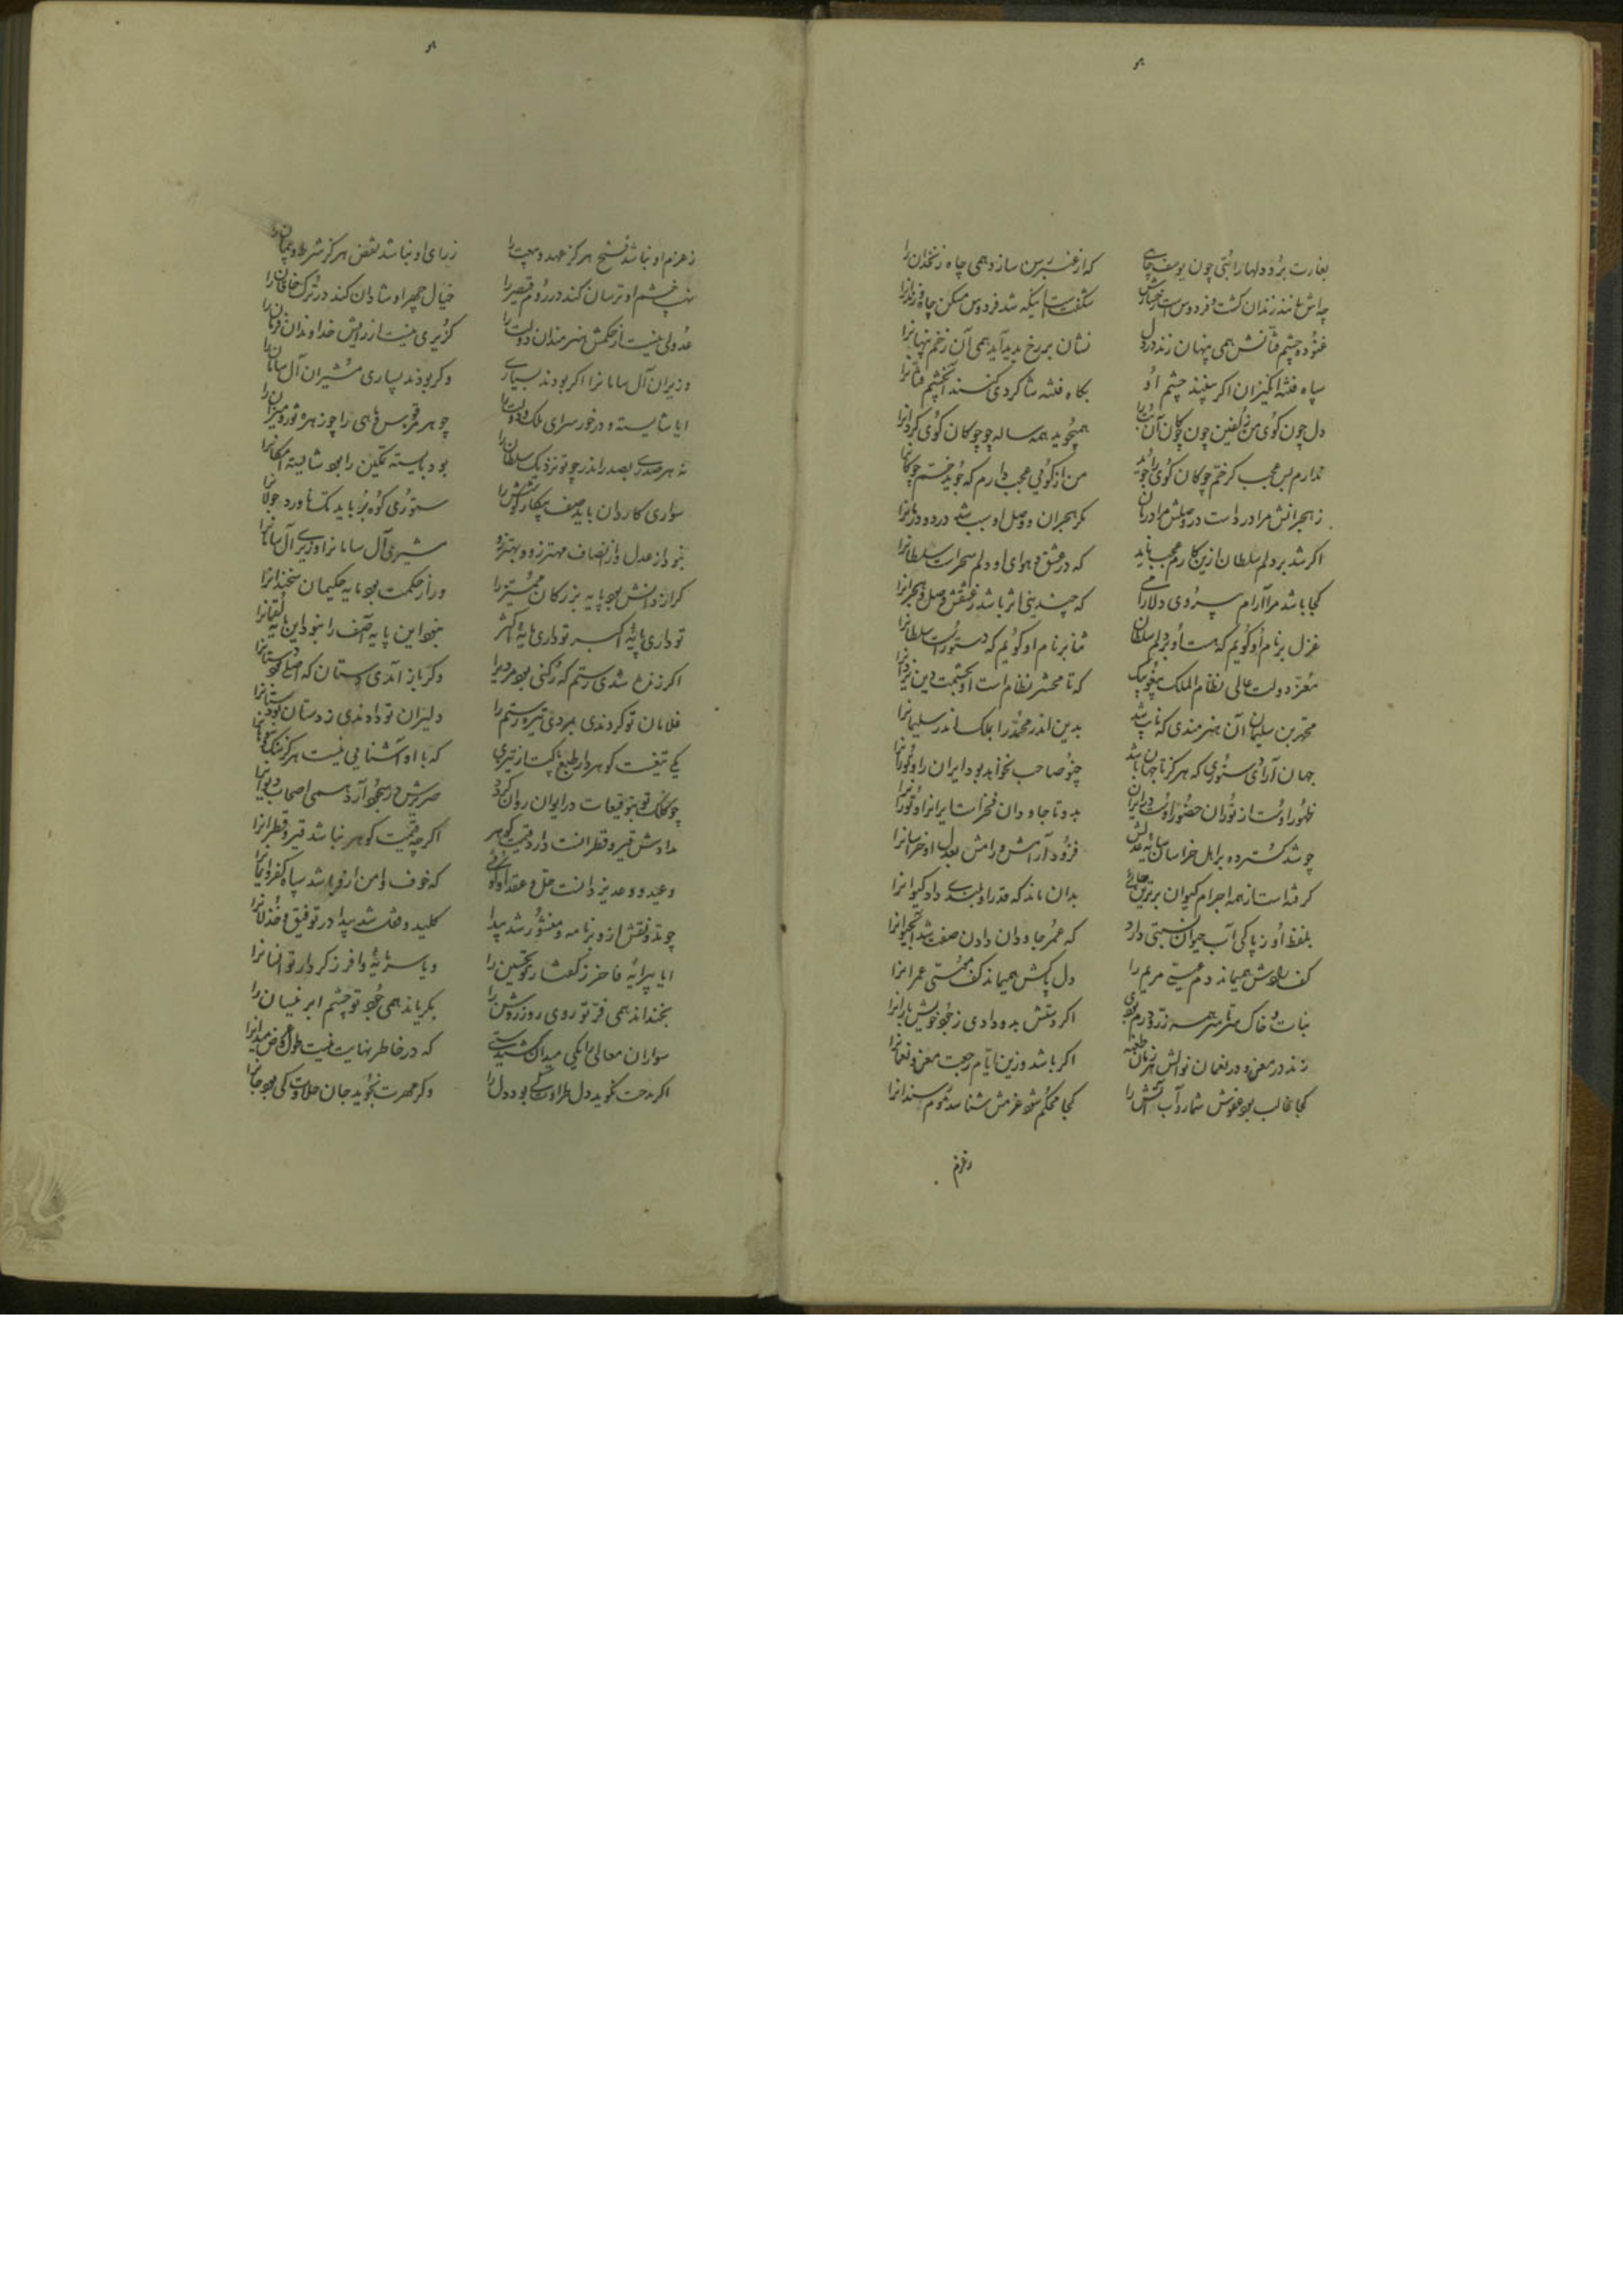 بغارت برد دلها را بتی چون یوسف چاهی که از عنبر رسن سازد همی چاه زنخدان را
چه اش مانند زندان گشت و فردوس است رخسارش شگفت است اینکه شد فردوس مسکن چاه و زندانرا
غنوده چشم فتانش همی پنهان زند در دل نشان بر رخ پدید آید همی آن زخم پنهانرا
سپاه فتنه انگیزان اگر بینند چشم او بگاه فتنه شاگردی کنند آن چشم فتانرا
دل چون گوی من زلفین چون چوگان آن بت را همیجوید همه ساله چو چوگان گوی گردانرا
ندارم بس عجب گر خم چوگان گوی را جوید من از گوئی عجب دارم که جوید خم چوگانرا
ز هجرانش مرا درد است در وصلش مرا درمان مگر هجران و وصل او سبب شد درد و درمانرا
اگر شد بر دلم سلطان ازین کارم عجب ناید که در عشق و هوای او دلم سخره است سلطانرا
کجا باشد مرا آرام بی روی دلارامی که چندینی اثر باشد ز عشقش وصل و هجرانرا
غزل بر نام او گویم که هست او بر دلم سلطان ثنا بر نام او گویم که دستور است سلطانرا
معز دولت عالی نظام الملک یبغوبیک که تا محشر نظام است او بحشمت دین یزدانرا
محمد بن سلیمان آن هنرمندی که نایب شد بدین اندر محمد را بملک اندر سلیمانرا
جهان آرای دستوری که هرگز تا جهان باشد چنو صاحب نخواهد بود ایران را و تورانرا
ظهور اوست از توران حضور اوست در ایران بدو تا جاودان فخر است ایرانرا و تورانرا
چو شد گسترده بر اهل خراسان سایه عدلش فزود آرامش و رامش بعدل او خراسانرا
گرفته است از همه اجرام کیوان برترین جائی بدان ماند که قدر او بلندی داد کیوانرا
بلفظ او ز پاکی آب حیوان نسبتی دارد که عمر جاودان دادن صفت شد آب حیوانرا
کف رادش همیماند دم عیسی مریم را دل پاکش همیماند کف موسی عمرانرا
نبات و خاک سرتاسر همه زر و درم بودی اگر دستش بدو دادی ز جود خویش بارانرا
زند در معن و در نعمان نوالش هر زمان طعنه اگر باشد وزین ایام رجعت معن و نعمانرا
کجا غالب بود عفوش شمارد آب آتش را کجا محکم شود عزمش شناسد موم سندانرا
ز عزم
ز عزم او نباشد فسخ هرگز عهد و بیعت را ز رای او نباشد نقض هرگز شرط و پیمان را
نهیب خشم او ترسان کند در روم قیصر را خیال چهر او شادان کند در ترک خاقان را
عدولی نیست از حکمش هنرمندان دولت را گزیری نیست از رایش خداوندان فرمان را
وزیران آل سامانرا اگر بودند بسیاری وگر بودند بسیاری مشیران آل سامان را
ایا شایسته و درخور سرای ملک و دولت را چو هر قوس و ماهی را چو زهره ثور و میزان را
نه هر صدری بصدر اندر چو تو نزدیک سلطان را بود بایسته تمکین را بود شایسته امکانرا
سواری کاردان باید صف پیکار و کوشش را ستوری کوه بر باید تک ناورد و جولانرا
نبود از عدل و از انصاف مهتر زو و بهتر زو مشیری آل سامانرا وزیری آل سامانرا
گر از دانش بود پایه بزرگان ممیز را ور از حکمت بود مایه حکیمان سخندانرا
تو داری پایه اکبر تو داری مایه اکثر نبود این پایه آصف را نبود این مایه لقمانرا
اگر زنده شدی رستم که رکنی بود مردیرا وگر باز آمدی دستان که اصلی بود دستانرا
غلامان تو کردندی بمردی خیره رستم را دلیران تو دادندی ز دستان بند دستانرا
یکی تیغست گوهردار طبع پاکت از تیزی که با او آشنایی نیست هرگز سنگ و سوهانرا
چو کلک تو بتوقیعات در ایوان روان گردد صریرش در سجود آرد همی اصحاب دیوانرا
مدادش قیر و قطرانست و دارد قیمت گوهر اگرچه قیمت گوهر نباشد قیر و قطرانرا
وعید و وعد یزدانست حل و عقد او گوئی که خوف و امن ازو باشد سپاه کفر و ایمانرا
چو زو نقش از و بر نامه و منشور شد پیدا کلید و قفل شد پیدا در توفیق و خذلانرا
ایا پیرایه فاخر ز گفتار تو تحسین را و یا سرمایه وافر ز کردار تو احسانرا
بخنداند همی فر تو روی روز روشن را بگریاند همی جود تو چشم ابر نیسان را
سواران معالی را یکی میدان کشیدستی که در خاطر نهایت نیست طول و عرض میدانرا
اگر مدحت نگوید دل طراوت کی بود دل را وگر مهرت نجوید جان حلاوت کی بود جانرا